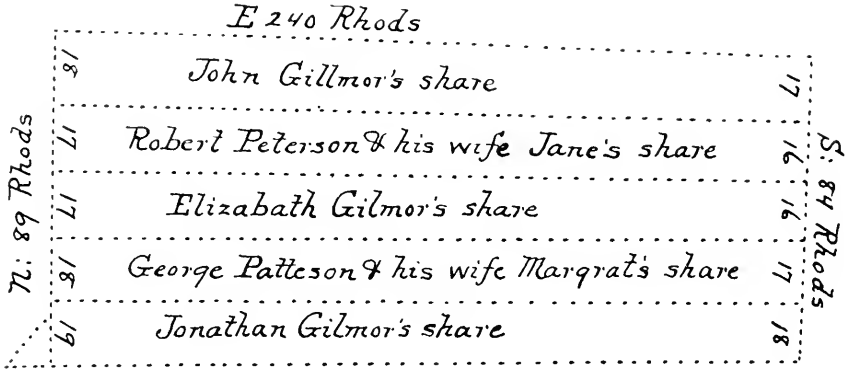 E 240 Rhods
N: 89 Rhods
18 John Gillmor's share 17
17 Robert Peterson & his wife Jane's share 16
17 Elizabath Gilmor's share 16
18 George Patteson & his wife Margrat's share 17
19 Jonathan Gilmor's share 18
S: 84 Rhods